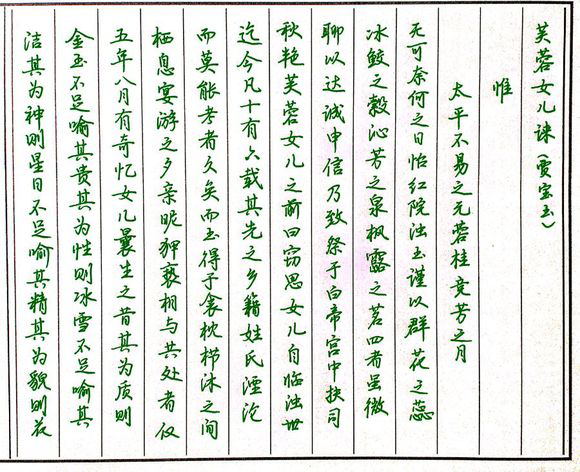 芙蓉女儿诔（贾宝玉）
惟
太平不易之元蓉桂竞芳之月
无可奈何之日怡红院浊玉谨以群花之蕊
冰鲛之縠沁芳之泉枫露之茗四者虽微
聊以达诚申信乃致祭于白帝宫中抚司
秋艳芙蓉女儿之前曰窃思女儿自临浊世
迄今凡十有六载其先之乡籍姓氏湮沦
而莫能考者久矣而玉得于衾枕栉沐之间
栖息宴游之夕亲昵狎亵相与共处者仅
五年八月有奇忆女儿曩生之昔其为质则
金玉不足喻其贵其为性则冰雪不足喻其
洁其为神则星日不足喻其精其为貌则花